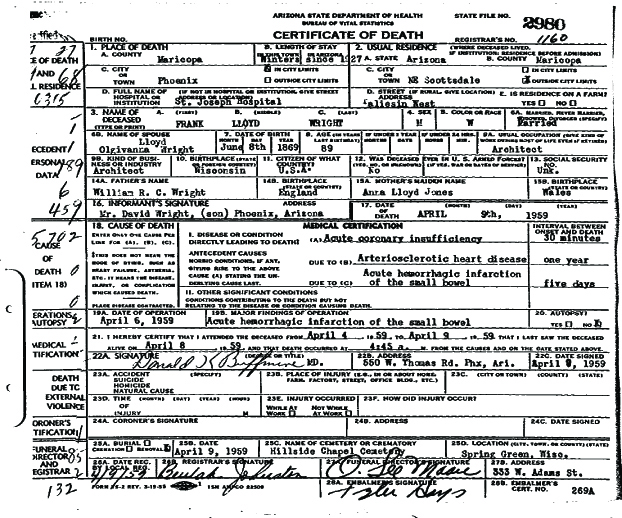 ARIZONA STATE DEPARTMENT OF HEALTH
BUREAU OF VITAL STATISTICS
STATE FILE NO. 2980
CERTIFICATE OF DEATH
BIRTH NO.
REGISTRAR'S NO. 1160
1. PLACE OF DEATH
A. COUNTY Maricopa
B. LENGTH OF STAY
Winters since 1927
2. USUAL RESIDENCE (WHERE DECEASED LIVED. IF INSTITUTION: RESIDENCE BEFORE ADMISSION)
A. STATE Arizona B. COUNTY Maricopa
C. CITY OR TOWN Phoenix
IN CITY LIMITS
OUTSIDE CITY LIMITS
C. CITY OR TOWN NE Scottsdale
IN CITY LIMITS
OUTSIDE CITY LIMITS
D. FULL NAME OF HOSPITAL OR INSTITUTION (IF NOT IN HOSPITAL OR INSTITUTION, GIVE STREET ADDRESS OR LOCATION)
St. Joseph Hospital
D. STREET ADDRESS (IF RURAL, GIVE LOCATION)
Taliesin West
E. IS RESIDENCE ON A FARM?
YES NO
3. NAME OF DECEASED (TYPE OR PRINT)
A. (FIRST) B. (MIDDLE) C. (LAST)
FRANK LLOYD WRIGHT
4. SEX
M
5. COLOR OR RACE
W
Married
6B. NAME OF SPOUSE
Lloyd
Olgivanna Wright
7. DATE OF BIRTH
MONTH DAY YEAR
June 8th 1869
8. AGE
89
9A. USUAL OCCUPATION
Architect
9B. KIND OF BUSINESS OR INDUSTRY
Architect
10. BIRTHPLACE (STATE OR FOREIGN COUNTRY)
Wisconsin
11. CITIZEN OF WHAT COUNTRY?
U.S.A.
12. WAS DECEASED EVER IN U. S. ARMED FORCES?
No
13. SOCIAL SECURITY NO.
Unk.
14A. FATHER'S NAME
William R. C. Wright
14B. BIRTHPLACE (STATE OR COUNTRY)
England
15A. MOTHER'S MAIDEN NAME
Anna Lloyd Jones
15B. BIRTHPLACE (STATE OR COUNTRY)
Wales
16. INFORMANT'S SIGNATURE ADDRESS
Mr. David Wright, (son) Phoenix, Arizona
17. DATE OF DEATH (MONTH) (DAY) (YEAR)
APRIL 9th, 1959
18. CAUSE OF DEATH
ENTER ONLY ONE CAUSE PER LINE FOR (A), (B), (C).
MEDICAL CERTIFICATION
INTERVAL BETWEEN ONSET AND DEATH
I. DISEASE OR CONDITION DIRECTLY LEADING TO DEATH
(A) Acute coronary insufficiency 30 minutes
ANTECEDENT CAUSES
MORBID CONDITIONS, IF ANY, GIVING RISE TO THE ABOVE CAUSE (A) STATING THE UNDERLYING CAUSE LAST.
DUE TO (B) Arteriosclerotic heart disease one year
DUE TO (C) Acute hemorrhagic infarction of the small bowel five days
THIS DOES NOT MEAN THE MODE OF DYING, SUCH AS HEART FAILURE, ASTHENIA, ETC. IT MEANS THE DISEASE, INJURY, OR COMPLICATION WHICH CAUSED DEATH.
PLACE DISEASE CONTRACTED.
II. OTHER SIGNIFICANT CONDITIONS
CONDITIONS CONTRIBUTING TO THE DEATH BUT NOT RELATING TO THE DISEASE OR CONDITION CAUSING DEATH.
19A. DATE OF OPERATION
April 6, 1959
19B. MAJOR FINDINGS OF OPERATION
Acute hemorrhagic infarction of the small bowel
20. AUTOPSY
YES NO
21. I HEREBY CERTIFY THAT I ATTENDED THE DECEASED FROM April 4 19 59, TO April 9 19 59, THAT I LAST SAW THE DECEASED
ALIVE ON April 8 19 59, AND THAT DEATH OCCURRED AT 4:45 a. M. FROM THE CAUSES AND ON THE DATE STATED ABOVE.
22A. SIGNATURE (DEGREE OR TITLE)
MD.
22B. ADDRESS
550 W. Thomas Rd. Phx, Ari.
22C. DATE SIGNED
1959
DEATH DUE TO EXTERNAL VIOLENCE
23A. ACCIDENT (SPECIFY)
SUICIDE
HOMICIDE
NATURAL CAUSE
23B. PLACE OF INJURY (E.G., IN OR ABOUT HOME, FARM, FACTORY, STREET, OFFICE BLDG., ETC.)
23C. (CITY OR TOWN) (COUNTY) (STATE)
23D. TIME OF INJURY (MONTH) (DAY) (YEAR) (HOUR) M
23E. INJURY OCCURRED
WHILE AT WORK NOT WHILE AT WORK
23F. HOW DID INJURY OCCUR?
24A. CORONER'S SIGNATURE
24B. ADDRESS
24C. DATE SIGNED
25A. BURIAL
CREMATION REMOVAL
25B. DATE
April 9, 1959
25C. NAME OF CEMETERY OR CREMATORY
Hillside Chapel Cemetery
25D. LOCATION (CITY, TOWN, OR COUNTY) (STATE)
Spring Green, Wisc.
26A. DATE REC'D BY LOCAL REG.
4/9/59
26B. REGISTRAR'S SIGNATURE
Beulah Johnston
27A. FUNERAL DIRECTOR'S SIGNATURE
27B. ADDRESS
333 W. Adams St.
28A. EMBALMER'S SIGNATURE
28B. EMBALMER'S CERT. NO. 269A
132